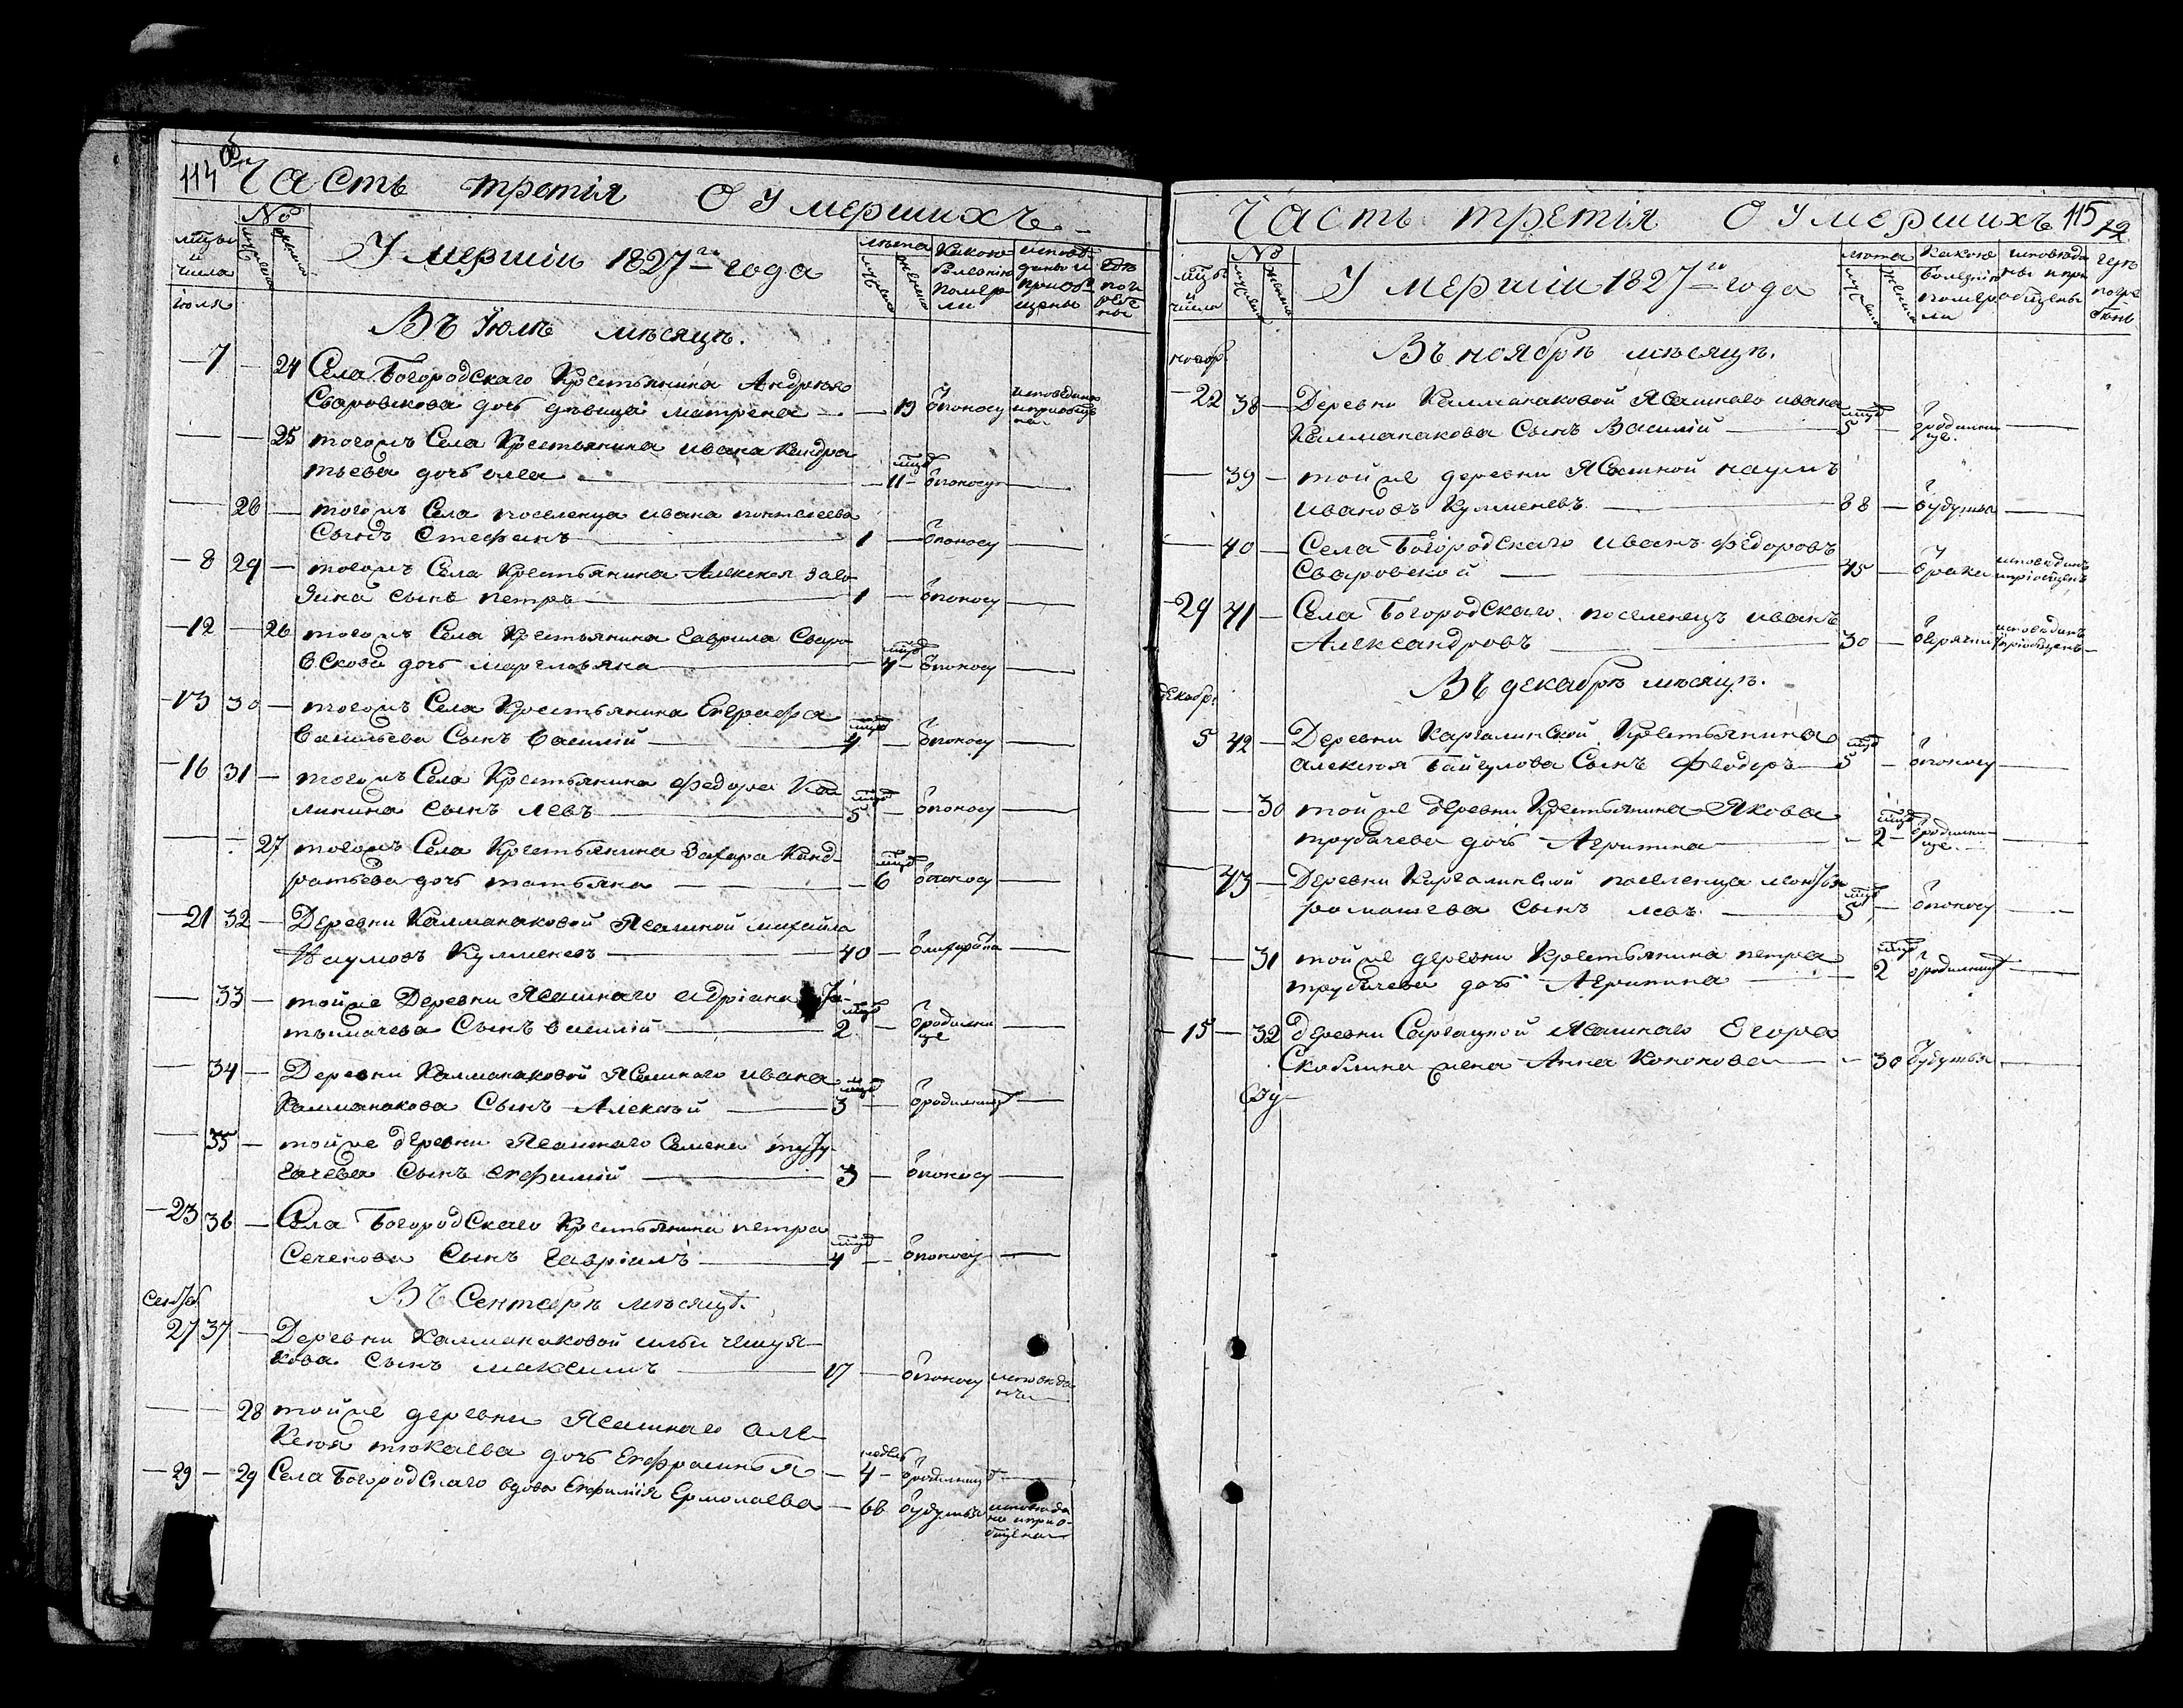 114 об
Часть третія О Умершихъ
мцы и числа
№
мужеска
женска
Умершіи 1827го года
лѣта
мужска
женска
Какою болѣзнію померли
исповѣданы и пріобщены
гдѣ погребены
іюля
Въ Іюлѣ мѣсяцѣ.
7 — 24 Села Богородскаго Крестьянина Андрея
Сваровскова дочь дѣвица матрена — 19 Ѿ поносу исповѣдана и пріобщена
— — 25 тогожъ Села Крестьянина ивана Кандра
тьева дочь — мцъ 11 — Ѿ поносу —
— 26 — тогожъ Села поселенца ивана
Сынъ Стефанъ — 1 — Ѿ поносу —
8 29 — тогожъ Села Крестьянина Алексея
сынъ петръ — 1 — Ѿ поносу —
12 — 26 тогожъ Села Крестьянина Гаврила Сваро
вскова дочь маремьяна — мцъ 4 — Ѿ поносу —
13 30 — тогожъ Села Крестьянина Евграфа
Васильева Сынъ василій — мцъ 4 — Ѿ поносу —
16 31 — тогожъ Села Крестьянина Федора Ка
линина сынъ левъ — мцъ 5 — Ѿ поносу —
— — 27 тогожъ Села Крестьянина Захара Канд
ратьева дочь татьяна — мцъ 6 Ѿ поносу —
21 32 — Деревни Калмаковой Ясашной михайла
Наумовъ Кулменевъ — 40 — Ѿ лихоратки —
— 33 — тойже Деревни Ясашнаго адріана
Сынъ василій — мцъ 2 — Ѿ родимца —
— 34 — Деревни Калманаковой Ясашнаго ивана
Калманакова Сынъ Алексѣй — мцъ 3 — Ѿ родимца —
— 35 — тойже деревни Ясашнаго Семена
Сынъ евфимій — 3 — Ѿ поносу —
23 36 — Села Богородскаго Крестьянина петра
Сеченова Сынъ Гавріилъ — мцъ 4 — Ѿ поносу —
Сентяб
Въ Сентябрѣ мѣсяцѣ.
27 37 — Деревни Калманаковой ильи чешуя
кова сынъ максимъ — 17 — Ѿ поносу исповѣданъ
— — 28 тойже деревни Ясашнаго Але
ксея тюкаева дочь Евфросинья — недель 4 — Ѿ родимца —
29 — 29 Села Богородскаго вдова Евфимія Ермолаева — 68 Ѿ удушья исповѣдана и пріобщена
Часть третія О Умершихъ 115
12
мцы и числа
№
мужеска
женска
Умершіи 1827го года
лѣта
мужеска
женска
Какою болѣзнію померли
исповѣданы и пріобщены
гдѣ погребены
ноябр.
Въ ноябрѣ мѣсяцѣ.
22 38 — Деревни Калманаковой Ясашнаго ивана
Калманакова Сынъ Василій — мцъ 5 — Ѿ родимца —
— 39 — тойже деревни Ясашной наумъ
ивановъ Кулменевъ — 68 — Ѿ удушья —
— 40 — Села Богородскаго иванъ Федоровъ
Сваровской — 45 — исповѣданъ и пріобщенъ
29 41 — Села Богородскаго поселенецъ иванъ
Александровъ — 30 — Ѿ горячки исповѣданъ и пріобщенъ —
декабр.
Въ декабрѣ мѣсяцѣ.
5 42 — Деревни Каргалинской Крестьянина
алексея Байгулова Сынъ Феодоръ — мцъ 5 — Ѿ поносу —
— — 30 тойже деревни Крестьянина Якова
трубачева дочь Агрипина — мцъ 2 — Ѿ родимца —
— 43 — Деревни Каргалинской поселенца
ромашева сынъ левъ — мцъ 5 — Ѿ поносу —
— — 31 тойже деревни Крестьянина петра
трубачева дочь Агрипина — мцъ 2 Ѿ родимца —
15 — 32 деревни Саргацкой Ясашнаго Егора
Скоблина жена Анна Кононова — 30 Ѿ удушья —